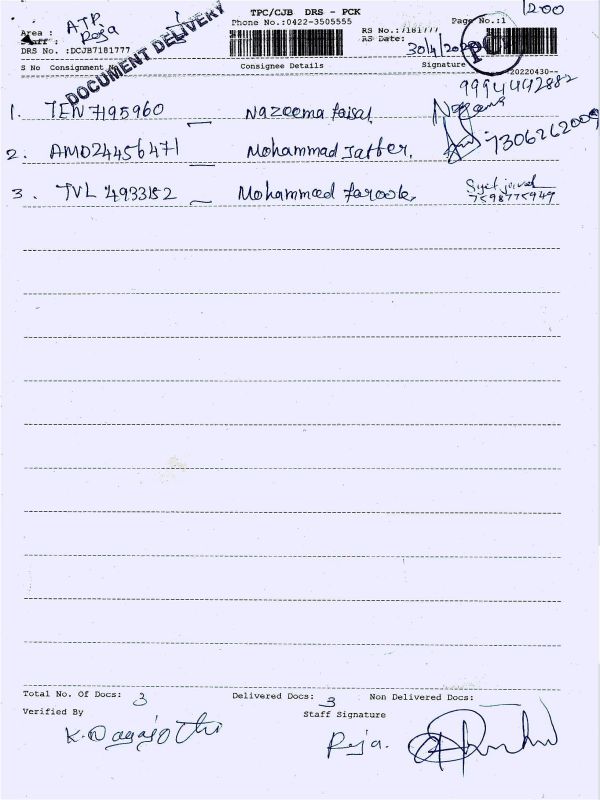 1200
TPC/CJB DRS - PCK
Phone No.:0422-3505555
Page No.:1
Area : AJR
Staff : Roja
DRS No. :DCJB7181777
RS No.:7181777
RS Date: 30/4/2022
DOCUMENT DELIVERY
S No Consignment No
Consignee Details
Signature
20220430--
9994442882
1. TEN 7195960 — Nazeema faisal
2. AMD24456471 Mohammad Jaffer. 7306262009
3. TVL 4933152 — Mohammed farook
Syet javed
7598775949
Total No. Of Docs: 3
Delivered Docs: 3
Non Delivered Docs:
Verified By
Staff Signature
Roja.